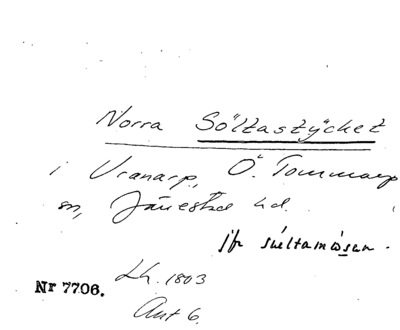 Norra Söltastycket
i Vranarp, Ö. Tommarp
sn, Järrestad hd.
jfr sueltamosen.
Lh. 1803
Nr 7706.
Akt 6.